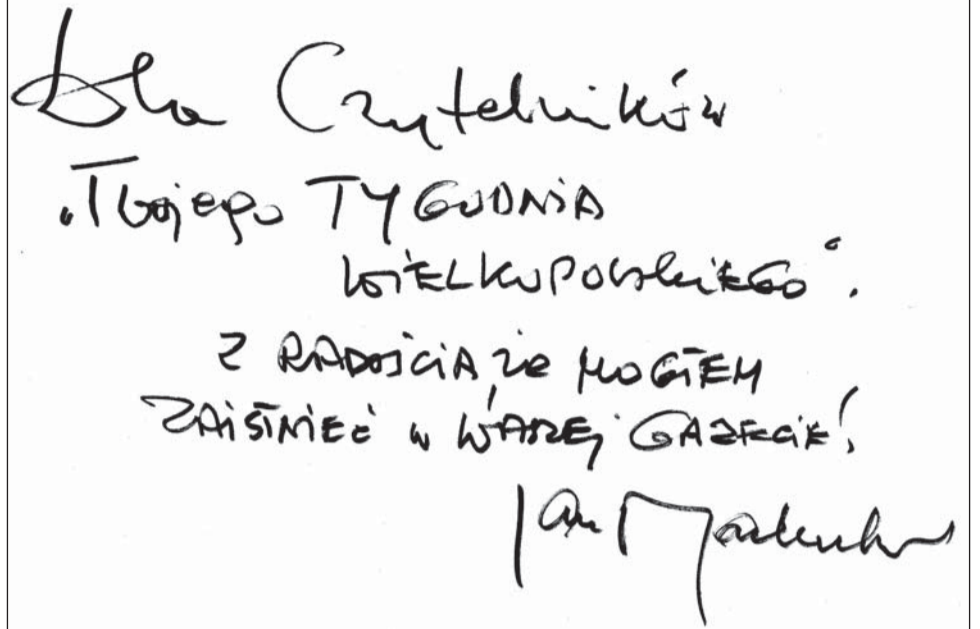 Dla Czytelników
„Twojego TYGODNIA
WIELKOPOLSKIEGO".
Z RADOŚCIĄ że MOGŁEM
ZAISTNIEĆ w WASZEJ GAZECIE!
Jan